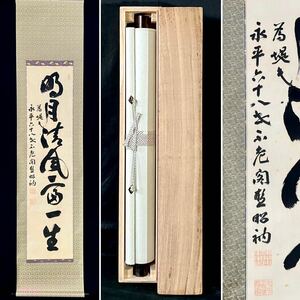 明月清風富一生
為堤氏
永平六十八世不老閣慧昭衲
為堤氏
永平六十八世不老閣慧昭衲